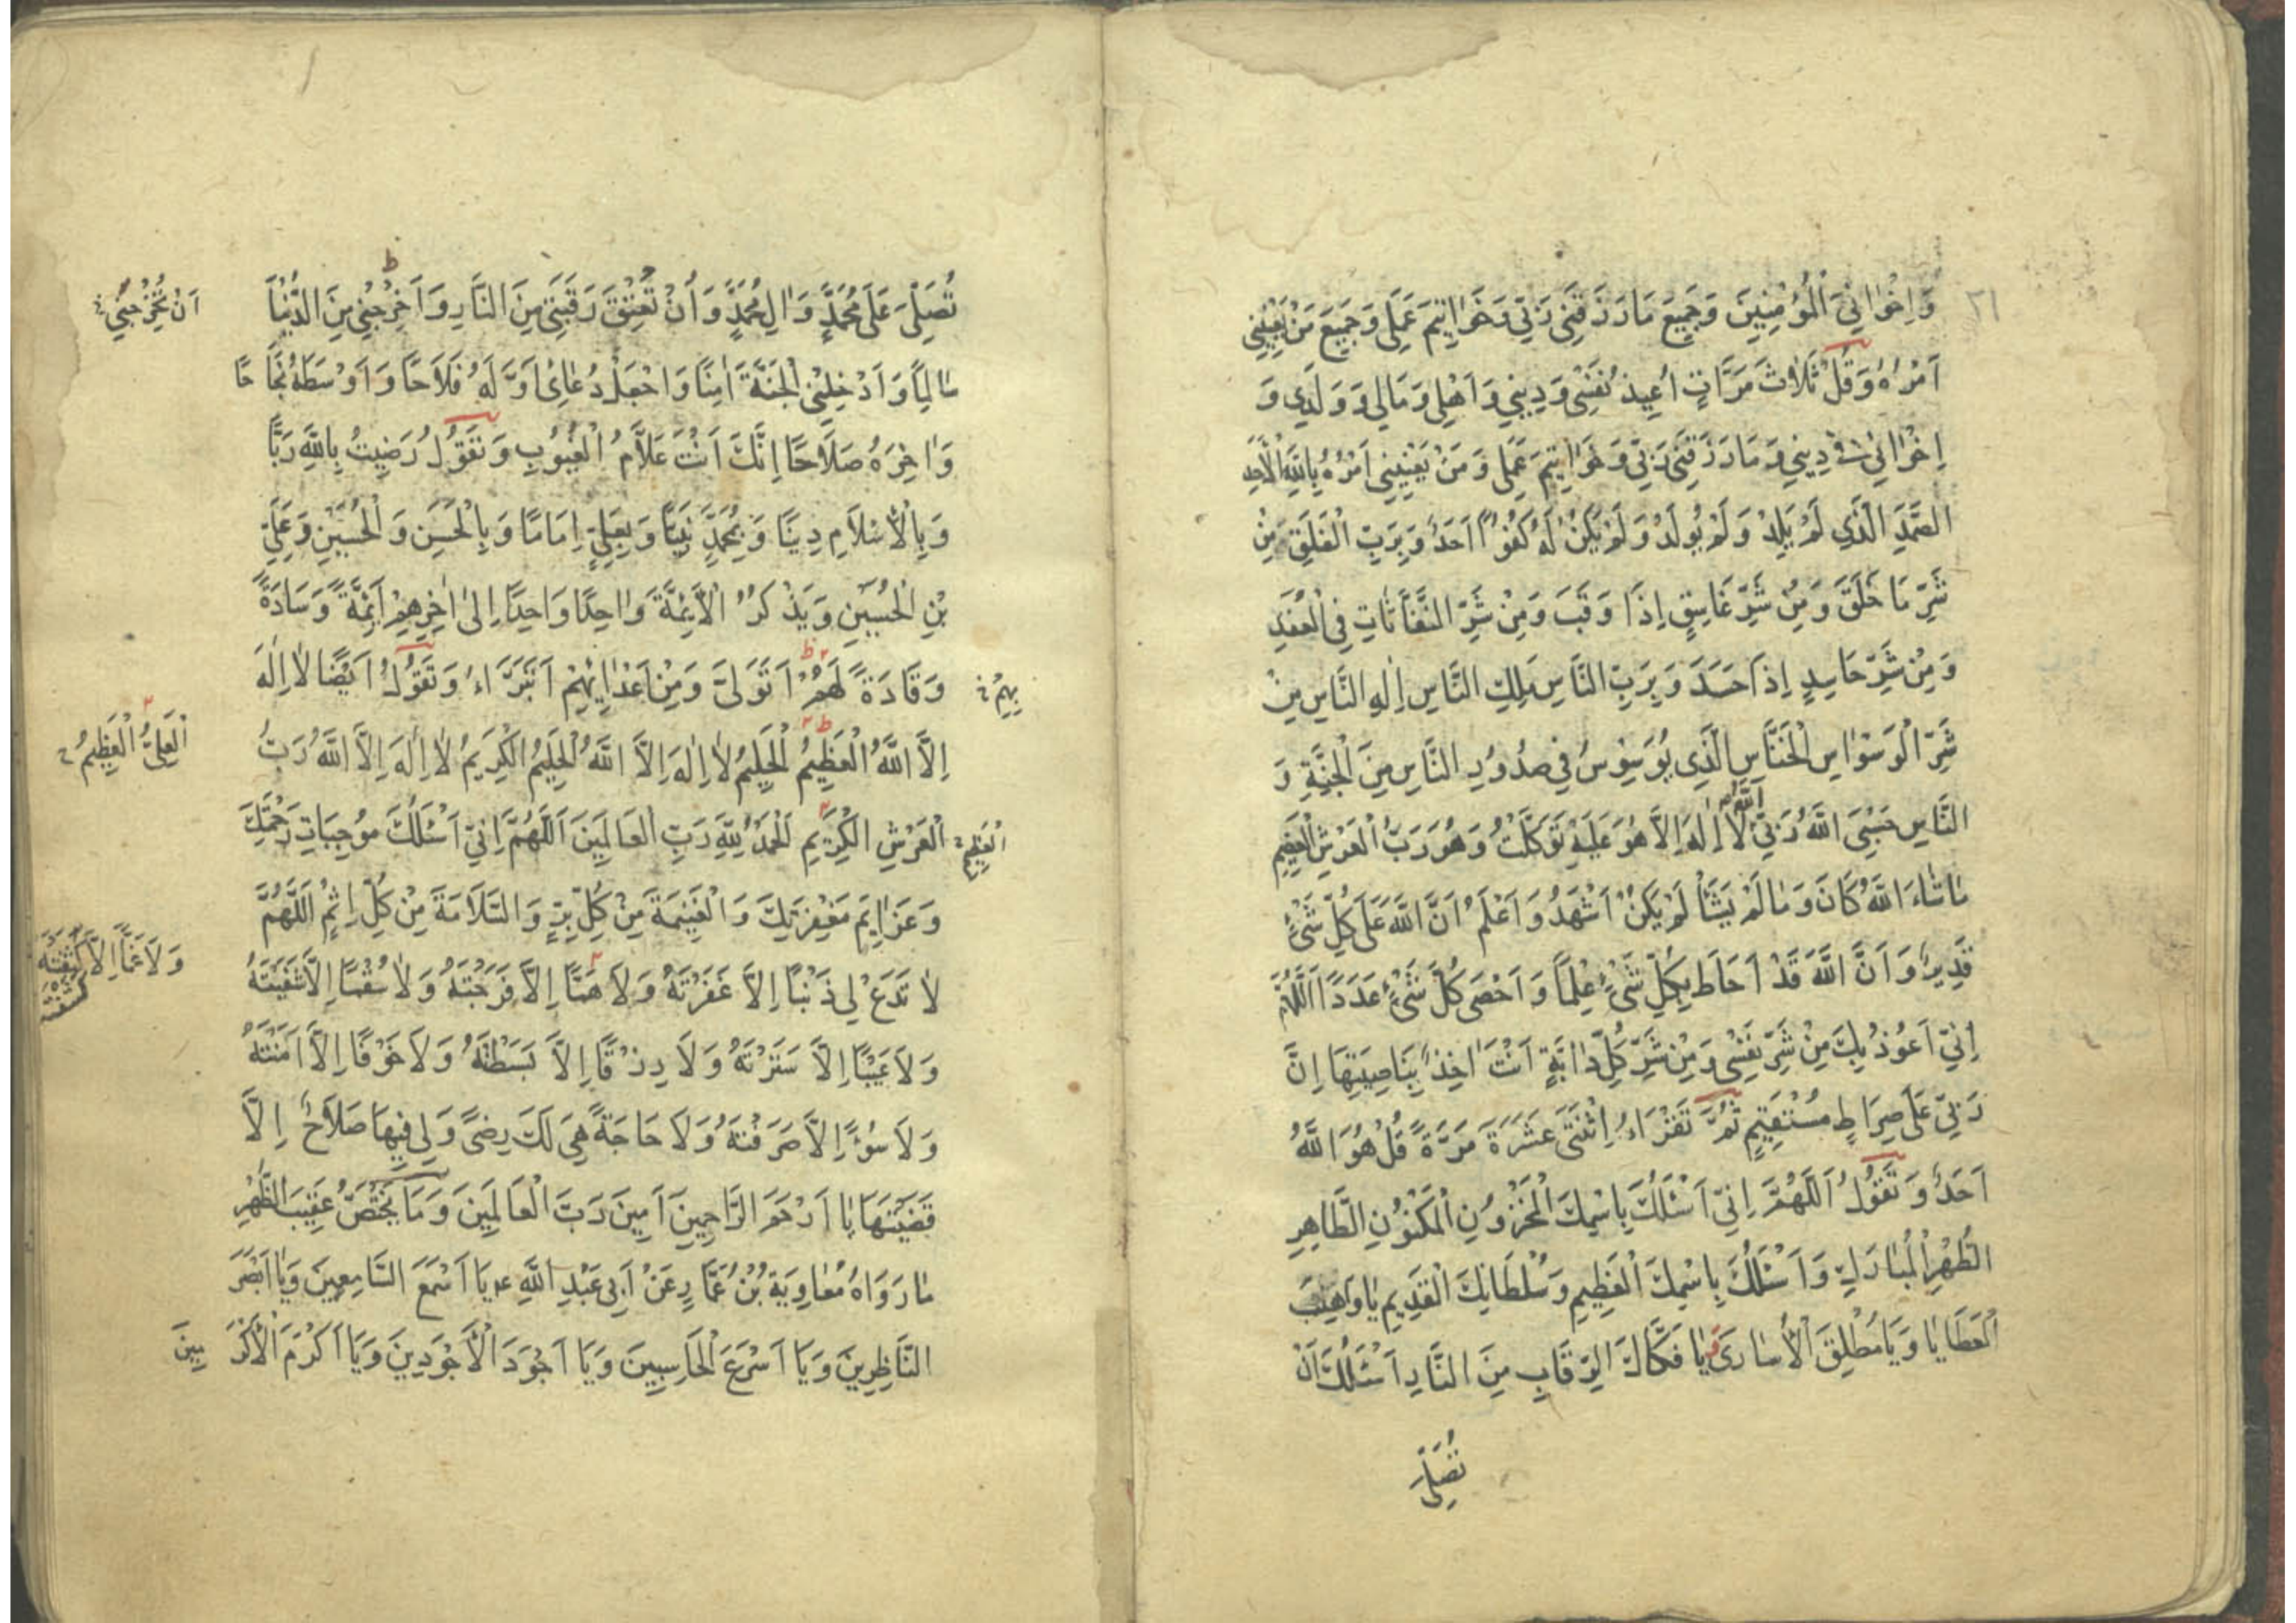 ٢١
وَاِخْوَانِيَ الْمُؤْمِنِينَ وَجَمِيعَ مَا رَزَقَنِي رَبِّي وَخَوَاتِيمَ عَمَلِي وَجَمِيعَ مَنْ يَعْنِينِي
اَمْرُهُ وَقُلْ ثَلَاثَ مَرَّاتٍ اُعِيذُ نَفْسِي وَدِينِي وَاَهْلِي وَمَالِي وَوَلَدِي وَ
اِخْوَانِي فِي دِينِي وَمَا رَزَقَنِي رَبِّي وَخَوَاتِيمَ عَمَلِي وَمَنْ يَعْنِينِي اَمْرُهُ بِاللّٰهِ الْاَحَدِ
الصَّمَدِ الَّذِي لَمْ يَلِدْ وَلَمْ يُولَدْ وَلَمْ يَكُنْ لَهُ كُفُوًا اَحَدٌ وَبِرَبِّ الْفَلَقِ مِنْ
شَرِّ مَا خَلَقَ وَمِنْ شَرِّ غَاسِقٍ اِذَا وَقَبَ وَمِنْ شَرِّ النَّفَّاثَاتِ فِي الْعُقَدِ
وَمِنْ شَرِّ حَاسِدٍ اِذَا حَسَدَ وَبِرَبِّ النَّاسِ مَلِكِ النَّاسِ اِلٰهِ النَّاسِ مِنْ
شَرِّ الْوَسْوَاسِ الْخَنَّاسِ الَّذِي يُوَسْوِسُ فِي صُدُورِ النَّاسِ مِنَ الْجِنَّةِ وَ
النَّاسِ حَسْبِيَ اللّٰهُ رَبِّيَ اللّٰهُ لَا اِلٰهَ اِلَّا هُوَ عَلَيْهِ تَوَكَّلْتُ وَهُوَ رَبُّ الْعَرْشِ الْعَظِيمِ
مَا شَاءَ اللّٰهُ كَانَ وَمَا لَمْ يَشَأْ لَمْ يَكُنْ اَشْهَدُ وَاَعْلَمُ اَنَّ اللّٰهَ عَلَى كُلِّ شَيْءٍ
قَدِيرٌ وَاَنَّ اللّٰهَ قَدْ اَحَاطَ بِكُلِّ شَيْءٍ عِلْمًا وَاَحْصَى كُلَّ شَيْءٍ عَدَدًا اَللّٰهُمَّ
اِنِّي اَعُوذُ بِكَ مِنْ شَرِّ نَفْسِي وَمِنْ شَرِّ كُلِّ دَابَّةٍ اَنْتَ اٰخِذٌ بِنَاصِيَتِهَا اِنَّ
رَبِّي عَلَى صِرَاطٍ مُسْتَقِيمٍ ثُمَّ تَقْرَاُ اِثْنَتَيْ عَشَرَةَ مَرَّةً قُلْ هُوَ اللّٰهُ
اَحَدٌ وَتَقُولُ اَللّٰهُمَّ اِنِّي اَسْئَلُكَ بِاسْمِكَ الْمَخْزُونِ الْمَكْنُونِ الطَّاهِرِ
الطُّهْرِ الْمُبَارَكِ وَاَسْئَلُكَ بِاسْمِكَ الْعَظِيمِ وَسُلْطَانِكَ الْقَدِيمِ يَا وَاهِبَ
الْعَطَايَا وَيَا مُطْلِقَ الْاُسَارَى يَا فَكَّاكَ الرِّقَابِ مِنَ النَّارِ اَسْئَلُكَ اَنْ
تُصَلِّيَ
تُصَلِّيَ عَلَى مُحَمَّدٍ وَاٰلِ مُحَمَّدٍ وَاَنْ تُعْتِقَ رَقَبَتِي مِنَ النَّارِ وَاَخْرِجْنِي مِنَ الدُّنْيَا
اَنْ تُخْرِجَنِي
سَالِمًا وَاَدْخِلْنِي الْجَنَّةَ اٰمِنًا وَاجْعَلْ دُعَائِي اَوَّلَهُ فَلَاحًا وَاَوْسَطَهُ نَجَاحًا
وَاٰخِرَهُ صَلَاحًا اِنَّكَ اَنْتَ عَلَّامُ الْغُيُوبِ وَتَقُولُ رَضِيتُ بِاللّٰهِ رَبًّا
وَبِالْاِسْلَامِ دِينًا وَبِمُحَمَّدٍ نَبِيًّا وَبِعَلِيٍّ اِمَامًا وَبِالْحَسَنِ وَالْحُسَيْنِ وَعَلِيِّ
بْنِ الْحُسَيْنِ وَيَذْكُرُ الْاَئِمَّةَ وَاحِدًا وَاحِدًا اِلَى اٰخِرِهِمْ اَئِمَّةً وَسَادَةً
وَقَادَةً لَهُمْ اَتَوَلَّى وَمِنْ اَعْدَائِهِمْ اَتَبَرَّاءُ وَتَقُولُ اَيْضًا لَا اِلٰهَ
بِهِمْ
اِلَّا اللّٰهُ الْعَظِيمُ الْحَلِيمُ لَا اِلٰهَ اِلَّا اللّٰهُ الْحَلِيمُ الْكَرِيمُ لَا اِلٰهَ اِلَّا اللّٰهُ رَبُّ
اَلْعَلِيُّ الْعَظِيمُ
الْعَرْشِ الْكَرِيمِ اَلْحَمْدُ لِلّٰهِ رَبِّ الْعَالَمِينَ اَللّٰهُمَّ اِنِّي اَسْئَلُكَ مُوجِبَاتِ رَحْمَتِكَ
الْعَظِيمِ
وَعَزَائِمَ مَغْفِرَتِكَ وَالْغَنِيمَةَ مِنْ كُلِّ بِرٍّ وَالسَّلَامَةَ مِنْ كُلِّ اِثْمٍ اَللّٰهُمَّ
لَا تَدَعْ لِي ذَنْبًا اِلَّا غَفَرْتَهُ وَلَا هَمًّا اِلَّا فَرَّجْتَهُ وَلَا سُقْمًا اِلَّا شَفَيْتَهُ
وَلَا غَمًّا اِلَّا كَشَفْتَهُ
وَلَا عَيْبًا اِلَّا سَتَرْتَهُ وَلَا رِزْقًا اِلَّا بَسَطْتَهُ وَلَا خَوْفًا اِلَّا اٰمَنْتَهُ
وَلَا سُوْءًا اِلَّا صَرَفْتَهُ وَلَا حَاجَةً هِيَ لَكَ رِضًى وَلِي فِيهَا صَلَاحٌ اِلَّا
قَضَيْتَهَا يَا اَرْحَمَ الرَّاحِمِينَ اٰمِينَ رَبَّ الْعَالَمِينَ وَمَا يَخْتَصُّ عَقِيبَ الظُّهْرِ
مَا رَوَاهُ مُعَاوِيَةُ بْنُ عَمَّارٍ عَنْ اَبِي عَبْدِ اللّٰهِ ع يَا اَسْمَعَ السَّامِعِينَ وَيَا اَبْصَرَ
النَّاظِرِينَ وَيَا اَسْرَعَ الْحَاسِبِينَ وَيَا اَجْوَدَ الْاَجْوَدِينَ وَيَا اَكْرَمَ الْاَكْرَمِينَ